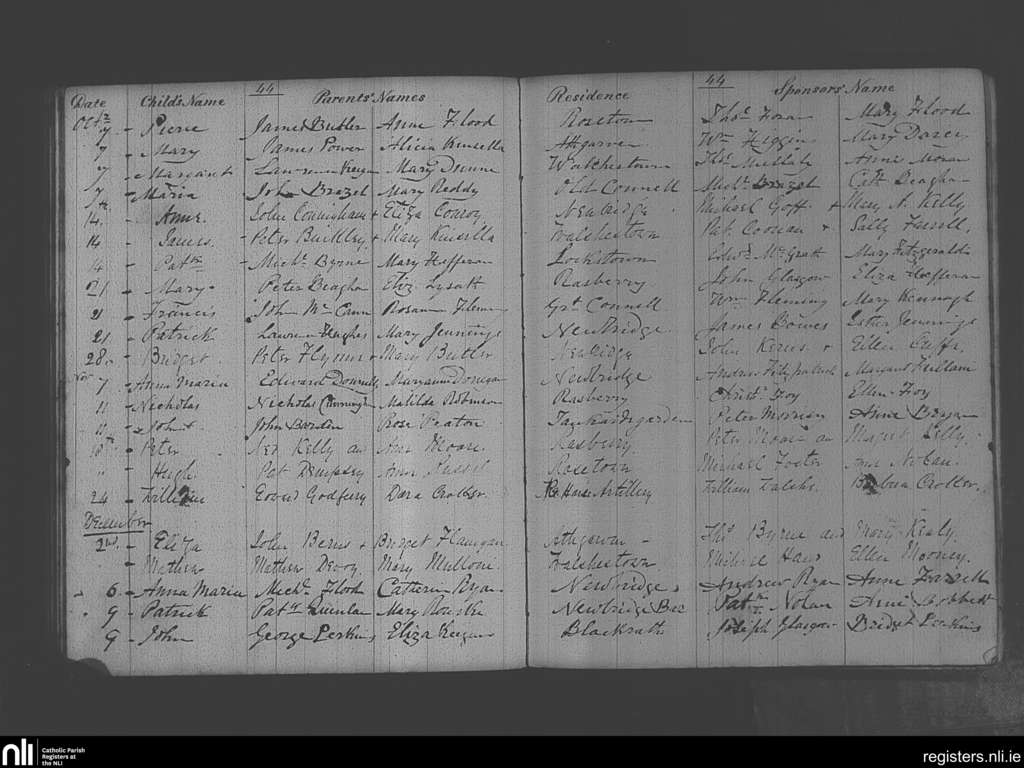 44 44
Date Childs Name Parents Names Residence Sponsors Name
Octr
7 - Pierce James Butler Anne Flood Rosetown Thos Horan Mary Flood
7 - Mary James Power Alicia Kinsella Athgarvan Wm Higgins Mary Darcy
7 - Margaret Mary Dunne Walshestown Thos Anne Moran
7th - Maria John Brazel Mary Reddy Old Connell Michl Brazel Cath
14. Anne. John Cuningham + Eliza Conroy Newbridge Michael Goff + Mary A. Kelly
14 - James. - Peter Buckley + Mary Kinsella Walshestown Pat Noonan + Sally Farrell.
14 - Patk - Michl Byrne Mary Heffernan Lockstown Edwd McGratt Mary Fitzgerald
21 - Mary Peter Eliz Lysatt Rasberry John Glasgow Eliza Heffernan
21 - Francis John Mc Cann Rosan Fleming Grt Connell Wm Fleming Mary Kinnagh
21. - Patrick Hughes Mary Jennings Newbridge James Bowes Esther Jennings
28. - Bridget Peter Flynn + Mary Butler Newbridge John + Ellen Cuffe.
Nov
7 - Anna Maria Edward Maryanne Donegan Newbridge Andrew Fitzpatrick Margaret
11 - Nicholas Nicholas Cunningham Matilda Robinson Rasberry Christr Foy Ellen Foy
11. - John John Borden Rose Peaton Tankardsgarden Peter Morrin Anne Bryan
18th - Peter Ned Kelly and Ann Moore. Rasberry Peter Moore and Margt Kelly.
" - Hugh. Pat Dempsey Ann Russell Rosetown Michael Foster Ann Nolan.
24 - William Edward Godfery Dora Crocker. Rl Horse Artillery William Walshe. Crocker.
December
2nd. - Eliza John + Bridget Flanigan Athgarvan - Thos Byrne and Mary Kealy.
- Mathew Mathew Devoy Mary Mullone Walshestown Michael Ellen Mooney.
6. - Anna Maria Michl Flood Cathern Ryan Newbridge Andrew Ryan Anne Farrell
9 - Patrick Patk Quinlan Mary Newbridge Patk Nolan Anne
9 - John George Perkins Eliza Blackrath Joseph Glasgow Bridget Perkins
nli Catholic Parish Registers at the NLI
registers.nli.ie